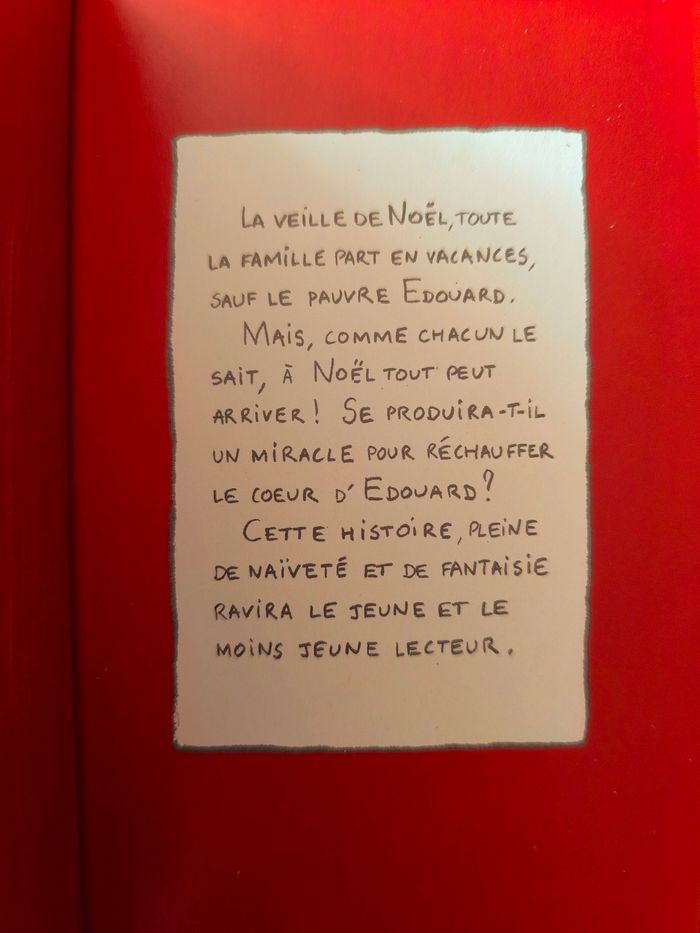 La veille de Noël, toute
la famille part en vacances,
sauf le pauvre Edouard.
Mais, comme chacun le
sait, à Noël tout peut
arriver! Se produira-t-il
un miracle pour réchauffer
le coeur d'Edouard?
Cette histoire, pleine
de naïveté et de fantaisie
ravira le jeune et le
moins jeune lecteur.